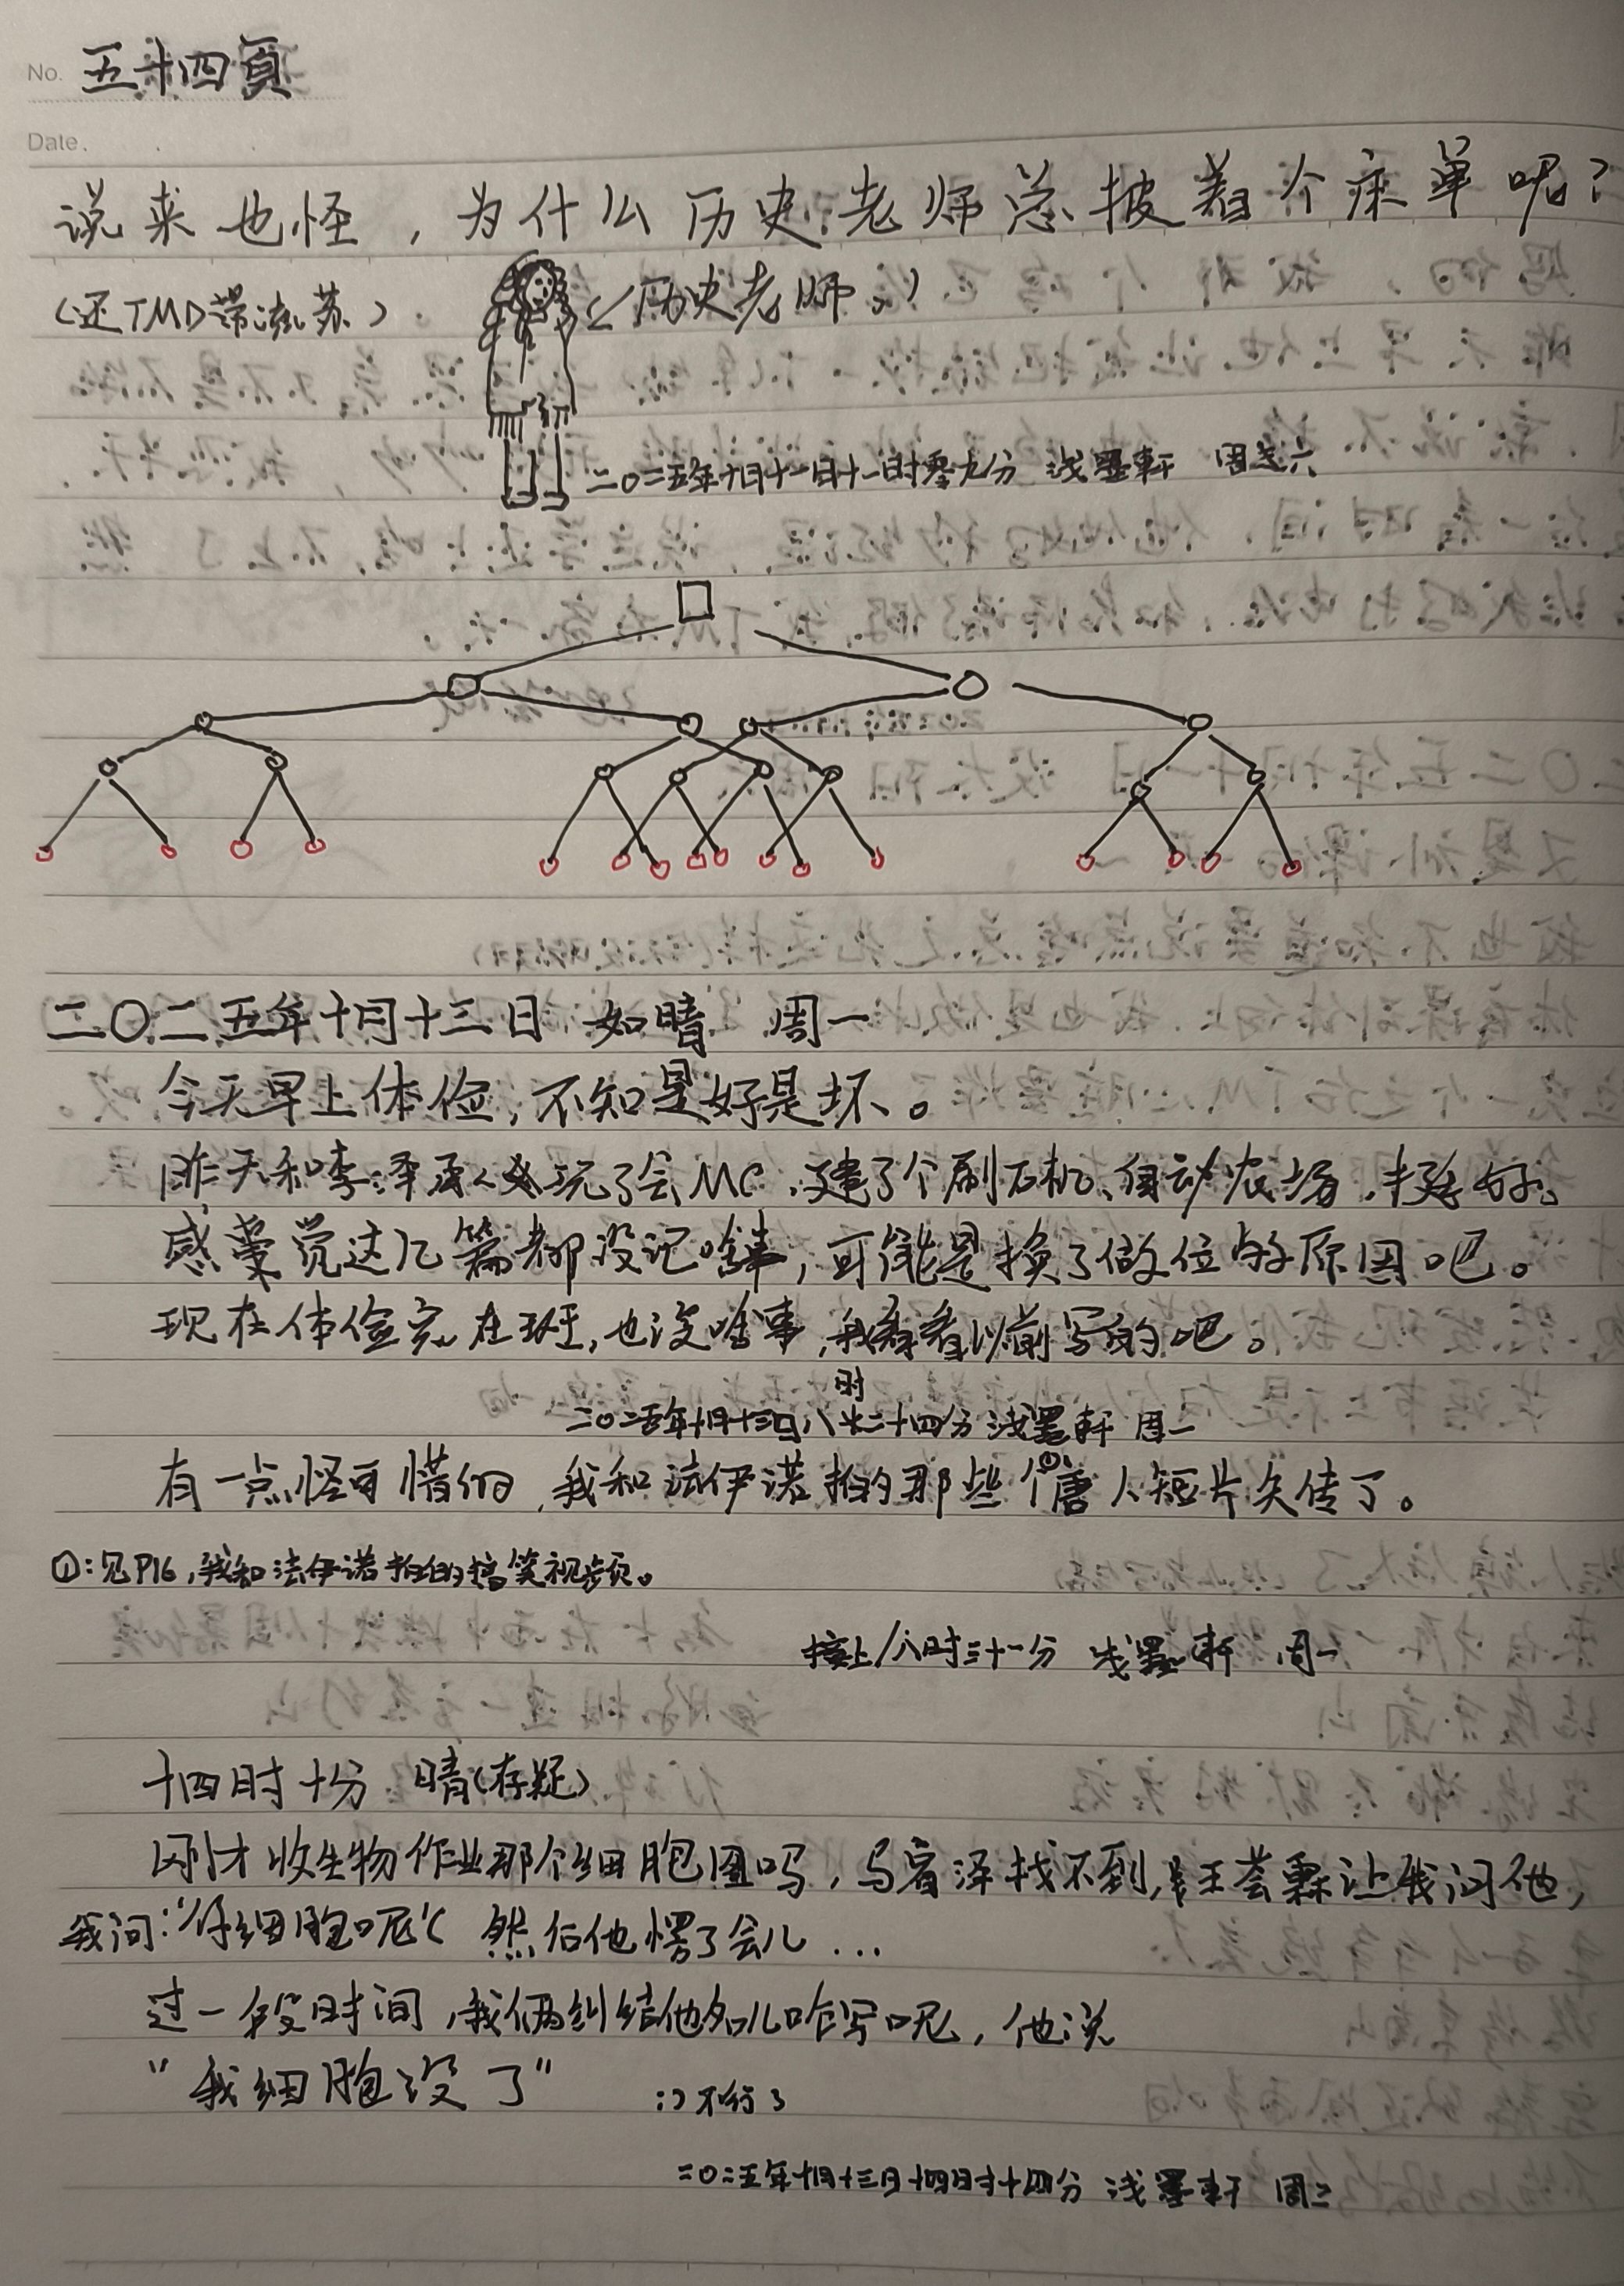 No. 五十四頁
Date.
说来也怪，为什么历史老师总披着个床单呢？
（还TMD带流苏） （历史老师。）
二〇二五年十月十一日十一时零九分 浅墨軒 周六
二〇二五年十月十三日 如晴 周一
今天早上体俭，不知是好是坏。
昨天和李泽承玩了会MC，建了个刷石机、自动农场，挺好。
感觉这几篇都没记啥事，可能是换了做位的原因吧。
现在体俭完在班，也没啥事，我看看以前写的吧。
二〇二五年十月十三日八时二十四分 浅墨軒 周一
有一点怪可惜的，我和法伊诺拍的那些个唐①人短片失传了。
①：见P16，我和法伊诺拍的搞笑视频。
接上/八时三十一分 浅墨軒 周一
十四时十分 晴（存疑）
刚才收生物作业那个细胞图吗，马睿泽找不到，王荟霖让我问他，
我问：“你细胞呢” 然后他愣了会儿...
过一段时间，我俩纠结他名儿咋写呢，他说
“我细胞没了” :) 不行了
二〇二五年十月十三日十四时十四分 浅墨軒 周二